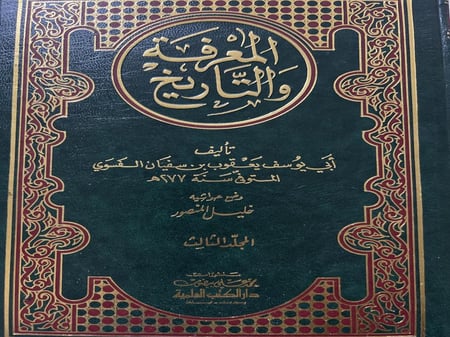 المعرفة
والتاريخ
تأليف
أبي يوسف يعقوب بن سفيان الفسوي
المتوفى سنة ٢٧٧ هـ
وضع حواشيه
خليل المنصور
المجلد الثالث
منشورات
محمد علي بيضون
دار الكتب العلمية